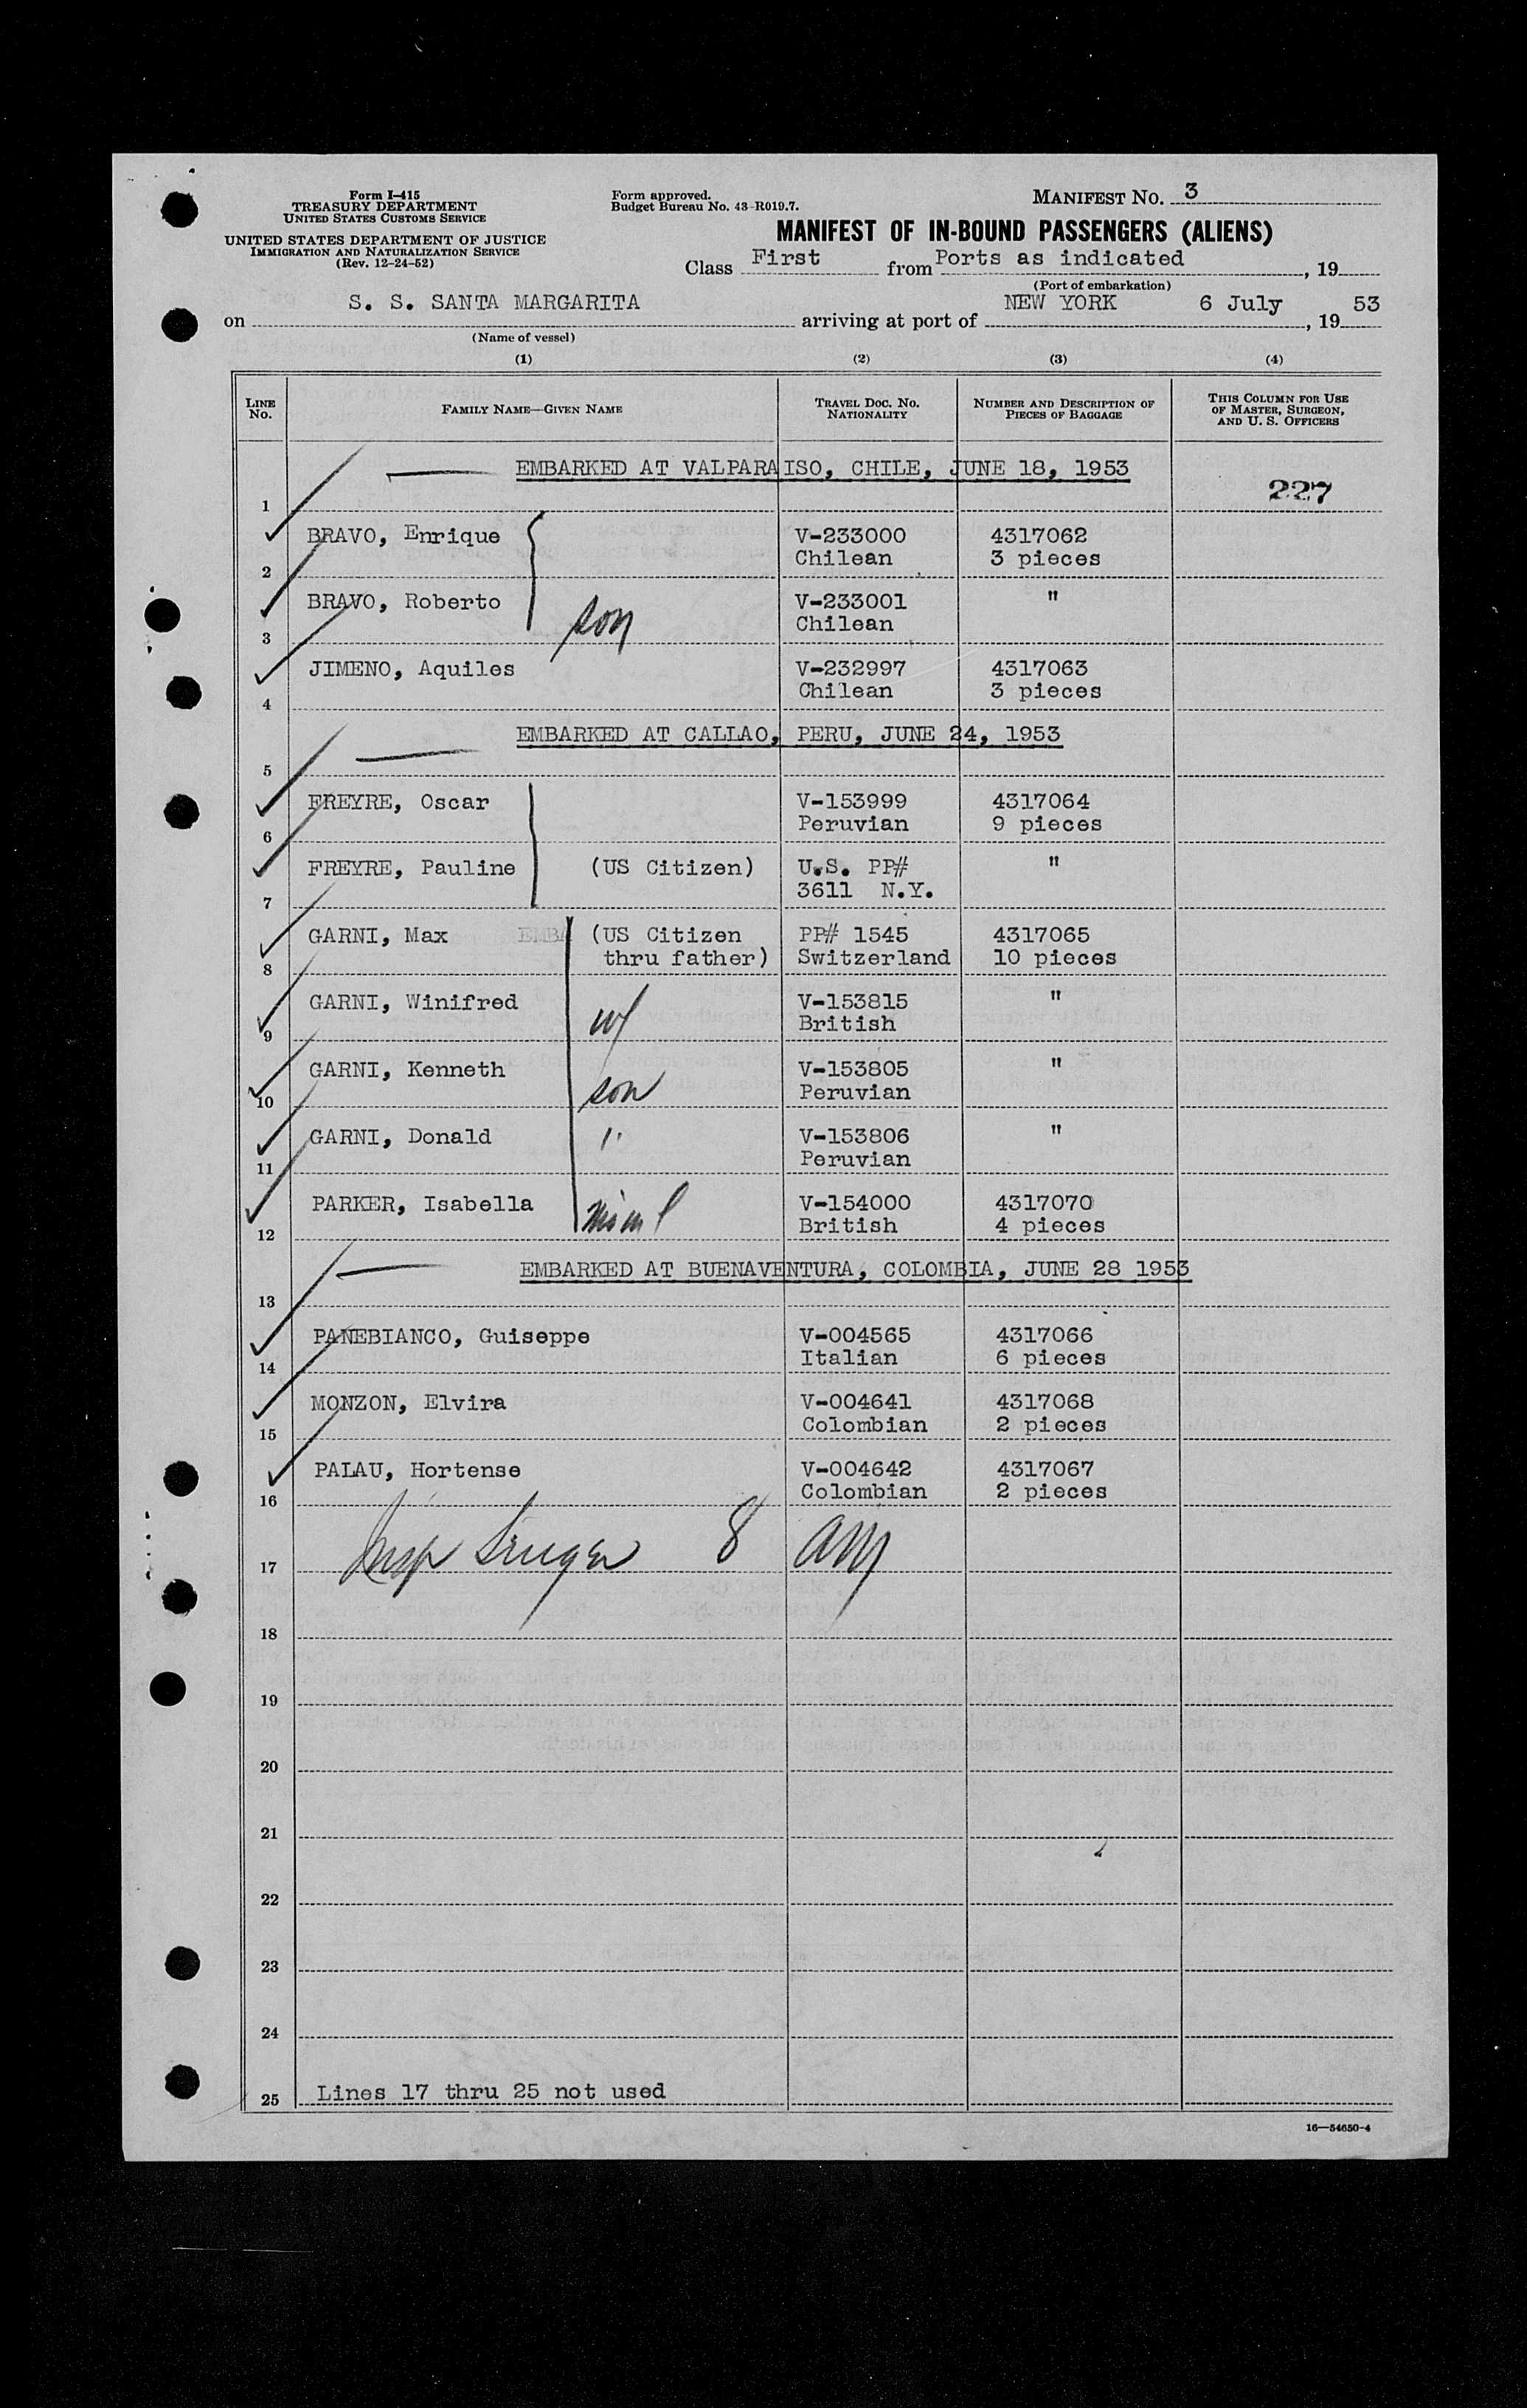 Form I-415
TREASURY DEPARTMENT
UNITED STATES CUSTOMS SERVICE
UNITED STATES DEPARTMENT OF JUSTICE
IMMIGRATION AND NATURALIZATION SERVICE
(Rev. 12-24-52)
Form approved.
Budget Bureau No. 43-R019.7.
MANIFEST No. 3
MANIFEST OF IN-BOUND PASSENGERS (ALIENS)
Class First from Ports as indicated, 19
(Port of embarkation)
on S. S. SANTA MARGARITA arriving at port of NEW YORK 6 July, 19 53
(Name of vessel)
(1) (2) (3) (4)
LINE No. FAMILY NAME—GIVEN NAME TRAVEL DOC. No. NATIONALITY NUMBER AND DESCRIPTION OF PIECES OF BAGGAGE THIS COLUMN FOR USE OF MASTER, SURGEON, AND U. S. OFFICERS
EMBARKED AT VALPARAISO, CHILE, JUNE 18, 1953
1 227
BRAVO, Enrique V-233000 4317062
2 Chilean 3 pieces
BRAVO, Roberto son V-233001 "
3 Chilean
JIMENO, Aquiles V-232997 4317063
4 Chilean 3 pieces
EMBARKED AT CALLAO, PERU, JUNE 24, 1953
5
FREYRE, Oscar V-153999 4317064
6 Peruvian 9 pieces
FREYRE, Pauline (US Citizen) U.S. PP# "
7 3611 N.Y.
GARNI, Max (US Citizen PP# 1545 4317065
8 thru father) Switzerland 10 pieces
GARNI, Winifred wf V-153815 "
9 British
GARNI, Kenneth son V-153805 "
10 Peruvian
GARNI, Donald " V-153806 "
11 Peruvian
PARKER, Isabella V-154000 4317070
12 British 4 pieces
EMBARKED AT BUENAVENTURA, COLOMBIA, JUNE 28 1953
13
PANEBIANCO, Guiseppe V-004565 4317066
14 Italian 6 pieces
MONZON, Elvira V-004641 4317068
15 Colombian 2 pieces
PALAU, Hortense V-004642 4317067
16 Colombian 2 pieces
17 Insp 8
18
19
20
21
22
23
24
25 Lines 17 thru 25 not used
16—54650-4